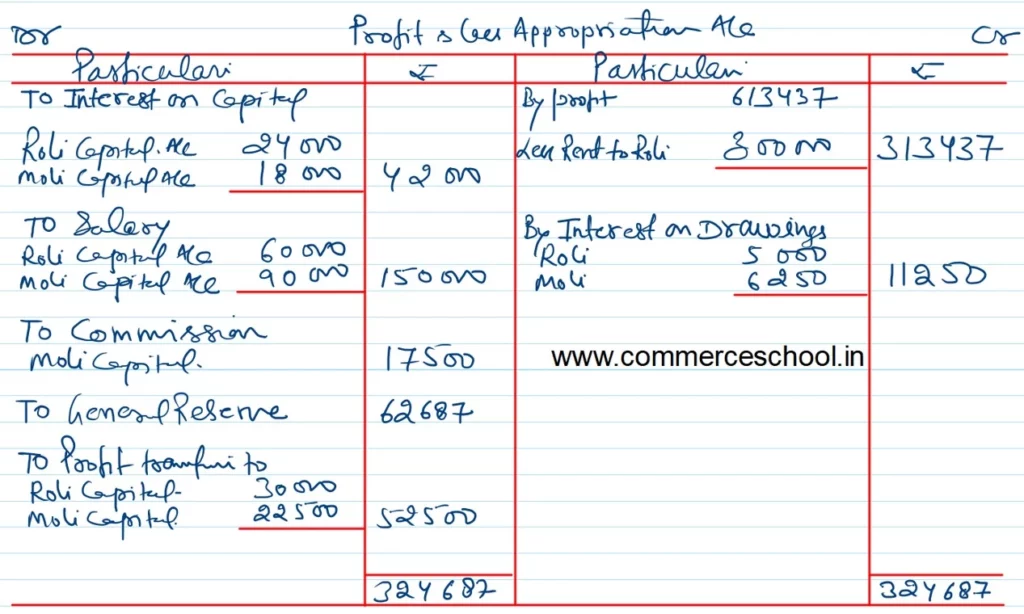 Dr Profit & Loss Appropriation A/c Cr
Particulars ₹ Particulars ₹
To Interest on Capital By profit 613437
Roli Capital A/c 24000 Less Rent to Roli 300000 313437
Moli Capital A/c 18000 42000
To Salary By Interest on Drawings
Roli Capital A/c 60000 Roli 5000
Moli Capital A/c 90000 150000 Moli 6250 11250
To Commission
Moli Capital. 17500 www.commerceschool.in
To General Reserve 62687
To Profit transfer to
Roli Capital- 30000
Moli Capital. 22500 52500
324687 324687